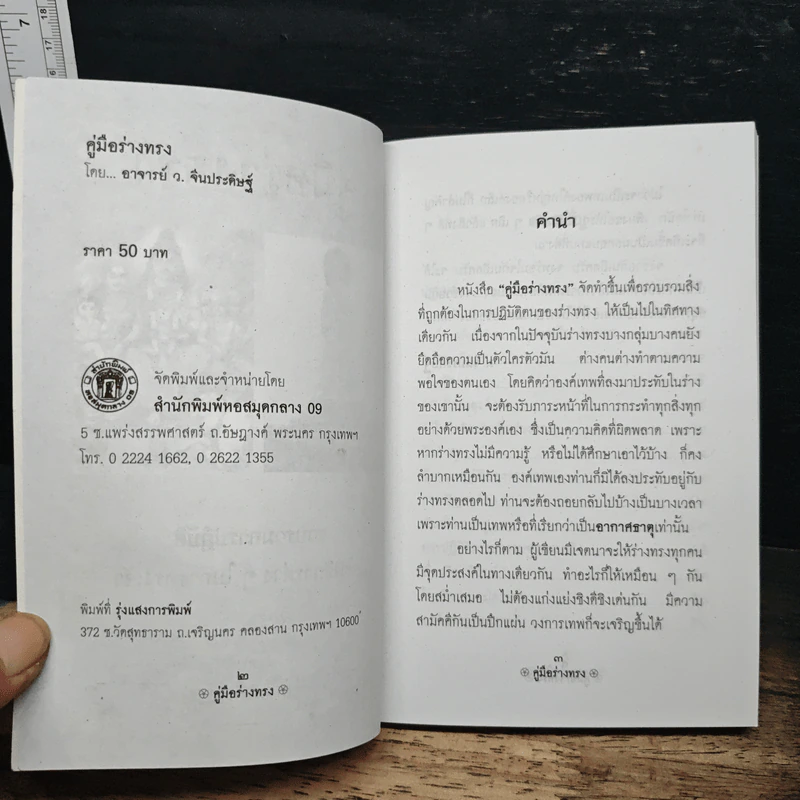 คู่มือร่างทรง
โดย... อาจารย์ ว. จีนประดิษฐ์
ราคา 50 บาท
สำนักพิมพ์
หอสมุดกลาง 09
จัดพิมพ์และจำหน่ายโดย
สำนักพิมพ์หอสมุดกลาง 09
5 ซ.แพร่งสรรพศาสตร์ ถ.อัษฎางค์ พระนคร กรุงเทพฯ
โทร. 0 2224 1662, 0 2622 1355
พิมพ์ที่ รุ่งแสงการพิมพ์
372 ซ.วัดสุทธาราม ถ.เจริญนคร คลองสาน กรุงเทพฯ 10600
๒
คู่มือร่างทรง
คำนำ
หนังสือ "คู่มือร่างทรง" จัดทำขึ้นเพื่อรวบรวมสิ่ง
ที่ถูกต้องในการปฏิบัติตนของร่างทรง ให้เป็นไปในทิศทาง
เดียวกัน เนื่องจากในปัจจุบันร่างทรงบางกลุ่มบางคนยัง
ยึดถือความเป็นตัวใครตัวมัน ต่างคนต่างทำตามความ
พอใจของตนเอง โดยคิดว่าองค์เทพที่ลงมาประทับในร่าง
ของเขานั้น จะต้องรับภาระหน้าที่ในการกระทำทุกสิ่งทุก
อย่างด้วยพระองค์เอง ซึ่งเป็นความคิดที่ผิดพลาด เพราะ
หากร่างทรงไม่มีความรู้ หรือไม่ได้ศึกษาเอาไว้บ้าง ก็คง
ลำบากเหมือนกัน องค์เทพเองท่านก็มิได้ลงประทับอยู่กับ
ร่างทรงตลอดไป ท่านจะต้องถอยกลับไปบ้างเป็นบางเวลา
เพราะท่านเป็นเทพหรือที่เรียกว่าเป็นอากาศธาตุเท่านั้น
อย่างไรก็ตาม ผู้เขียนมีเจตนาจะให้ร่างทรงทุกคน
มีจุดประสงค์ในทางเดียวกัน ทำอะไรก็ให้เหมือน ๆ กัน
โดยสม่ำเสมอ ไม่ต้องแก่งแย่งชิงดีชิงเด่นกัน มีความ
สามัคคีกันเป็นปึกแผ่น วงการเทพก็จะเจริญขึ้นได้
๓
คู่มือร่างทรง
7
18
17
16